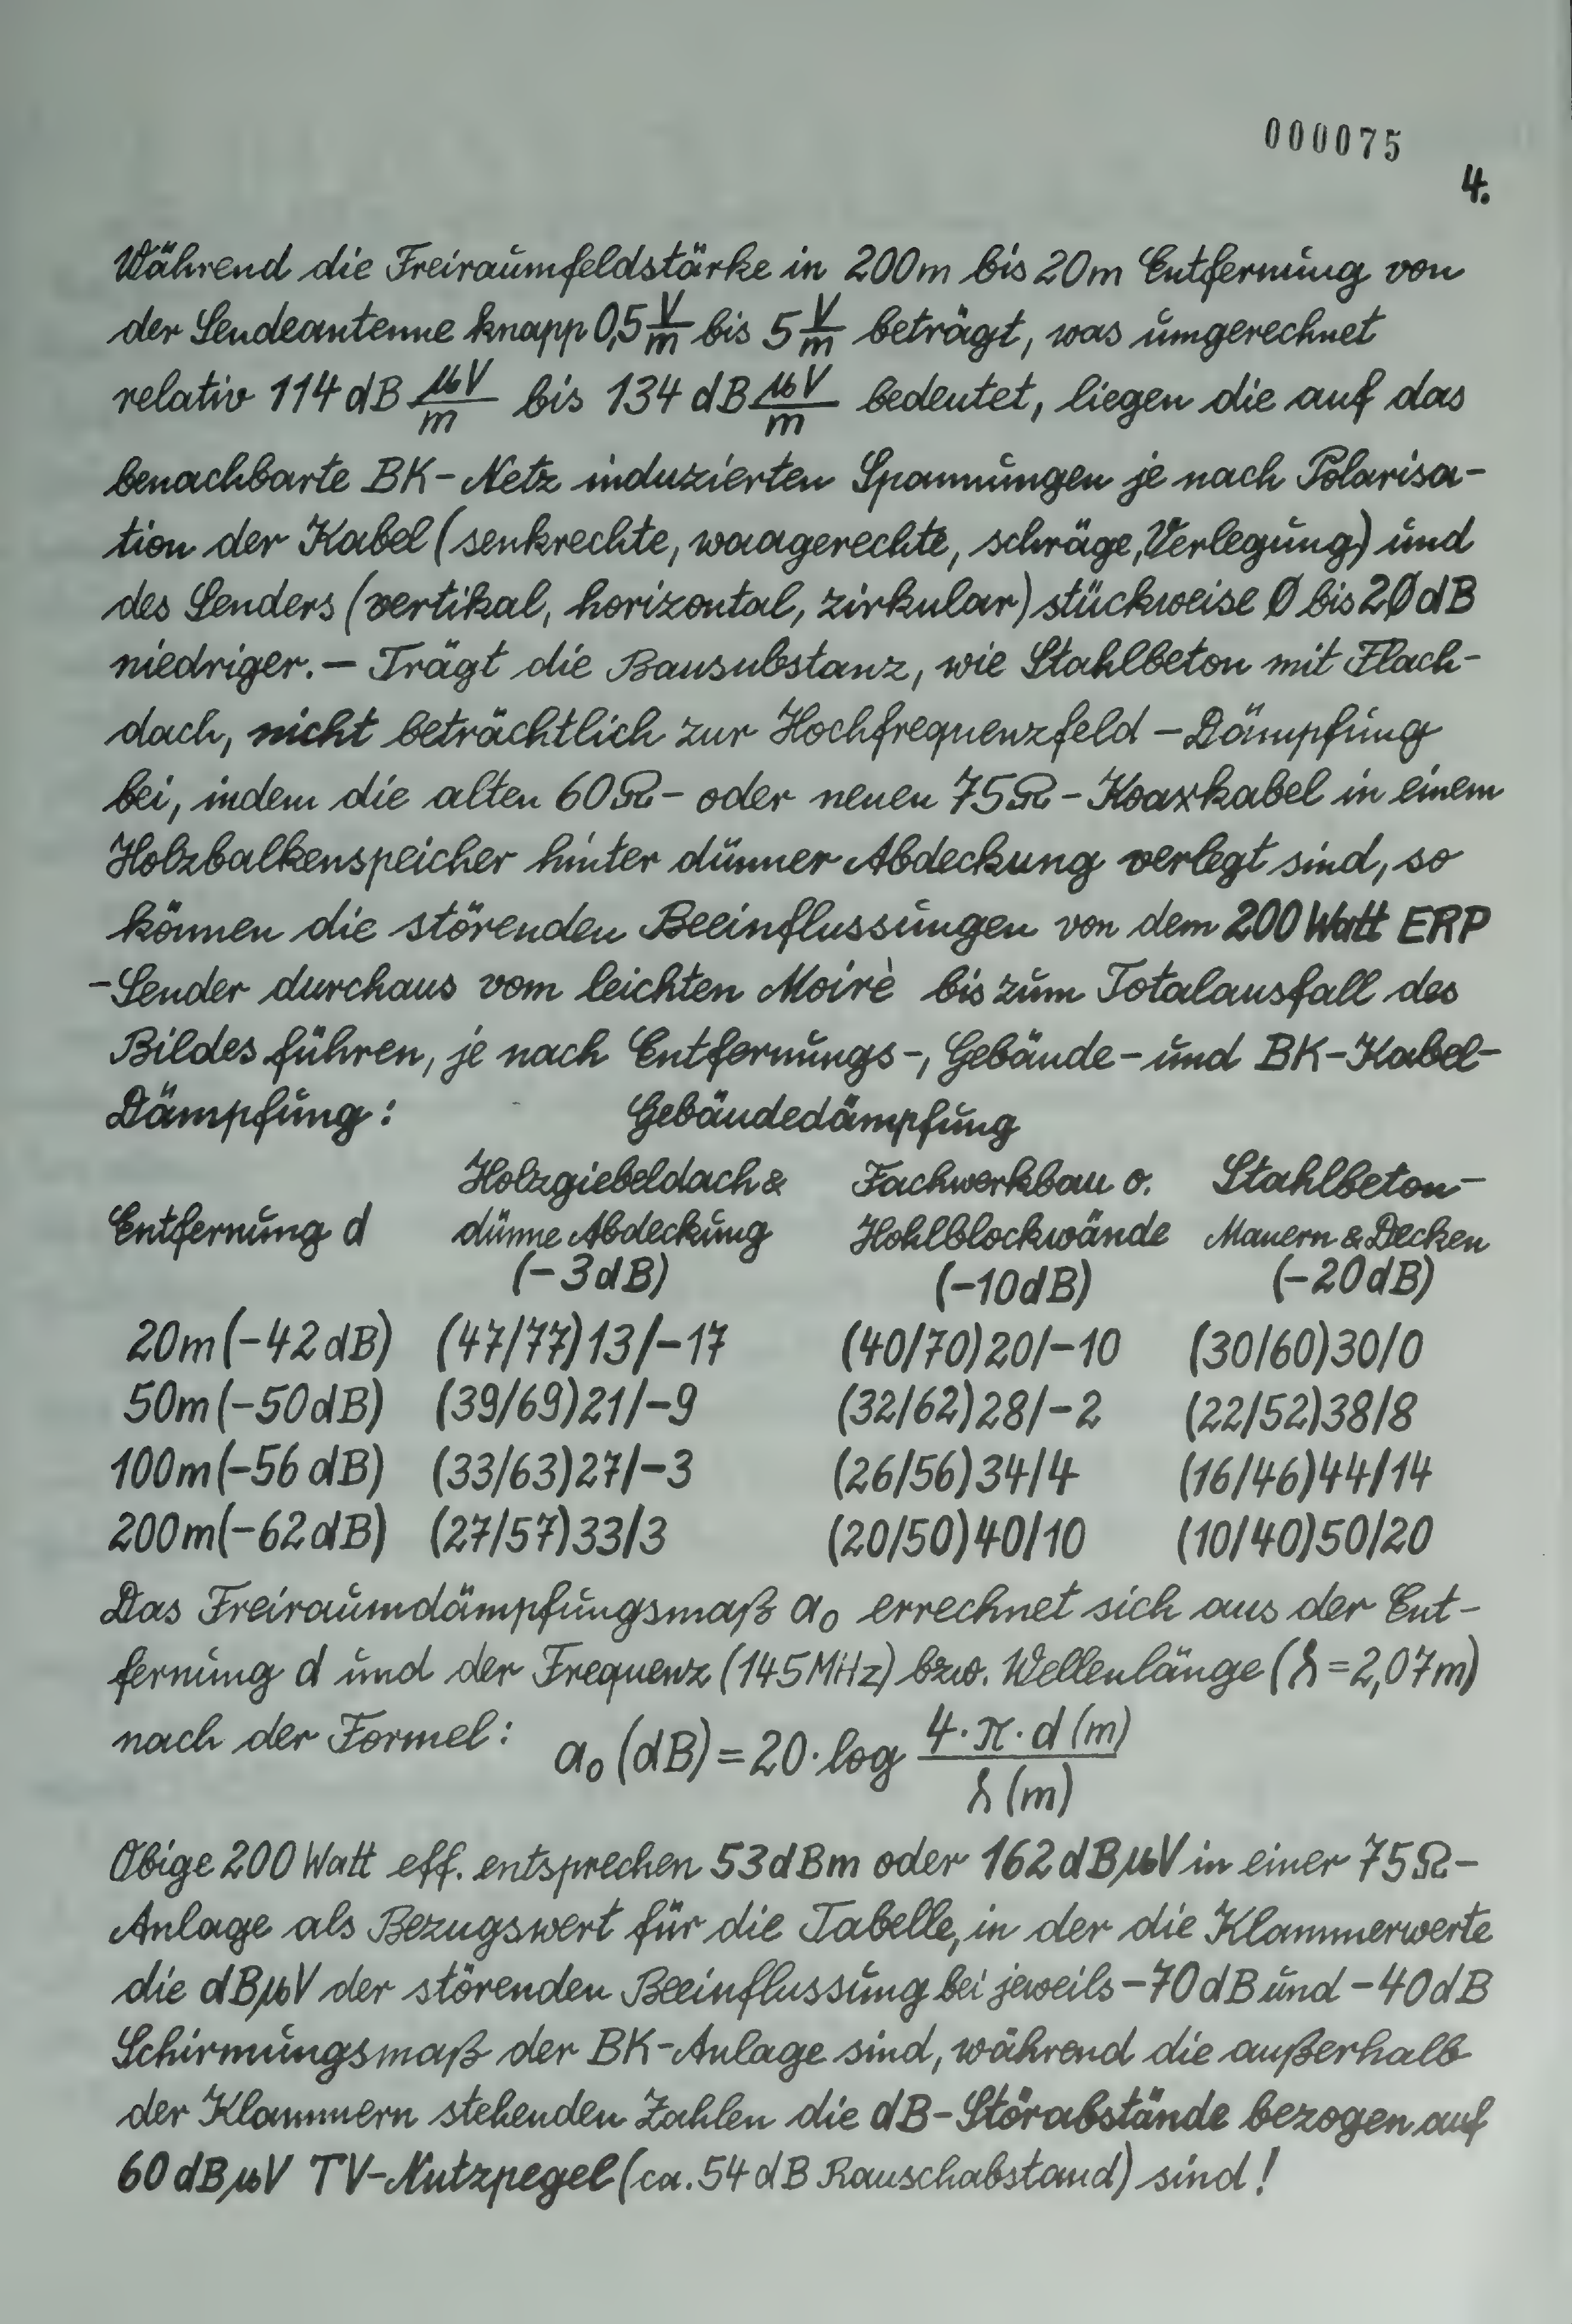 000075
4.
Während die Freiraumfeldstärke in 200m bis 20m Entfernung von
der Sendeantenne knapp 0,5 V/m bis 5 V/m beträgt, was umgerechnet
relativ 114 dB µV/m bis 134 dB µV/m bedeutet, liegen die auf das
benachbarte BK-Netz induzierten Spannungen je nach Polarisa-
tion der Kabel (senkrechte, waagerechte, schräge, Verlegung) und
des Senders (vertikal, horizontal, zirkular) stückweise Ø bis 2Ø dB
niedriger. — Trägt die Bausubstanz, wie Stahlbeton mit Flach-
dach, nicht beträchtlich zur Hochfrequenzfeld-Dämpfung
bei, indem die alten 60Ω- oder neuen 75Ω-Koaxkabel in einem
Holzbalkenspeicher hinter dünner Abdeckung verlegt sind, so
können die störenden Beeinflussungen von dem 200 Watt ERP
-Sender durchaus vom leichten Moirè bis zum Totalausfall des
Bildes führen, je nach Entfernungs-, Gebäude- und BK-Kabel-
Dämpfung: Gebäudedämpfung
Holzgiebeldach & Fachwerkbau o. Stahlbeton-
Entfernung d dünne Abdeckung Hohlblockwände Mauern & Decken
(-3dB) (-10dB) (-20dB)
20m (-42 dB) (47/77) 13/-17 (40/70) 20/-10 (30/60) 30/0
50m (-50 dB) (39/69) 21/-9 (32/62) 28/-2 (22/52) 38/8
100m (-56 dB) (33/63) 27/-3 (26/56) 34/4 (16/46) 44/14
200m (-62 dB) (27/57) 33/3 (20/50) 40/10 (10/40) 50/20
Das Freiraumdämpfungsmaß a₀ errechnet sich aus der Ent-
fernung d und der Frequenz (145 MHz) bzw. Wellenlänge (λ = 2,07m)
nach der Formel: a₀ (dB) = 20 · log 4 · π · d (m) / λ (m)
Obige 200 Watt eff. entsprechen 53 dBm oder 162 dBµV in einer 75Ω-
Anlage als Bezugswert für die Tabelle, in der die Klammerwerte
die dBµV der störenden Beeinflussung bei jeweils -70 dB und -40 dB
Schirmungsmaß der BK-Anlage sind, während die außerhalb
der Klammern stehenden Zahlen die dB-Störabstände bezogen auf
60 dBµV TV-Nutzpegel (ca. 54 dB Rauschabstand) sind!